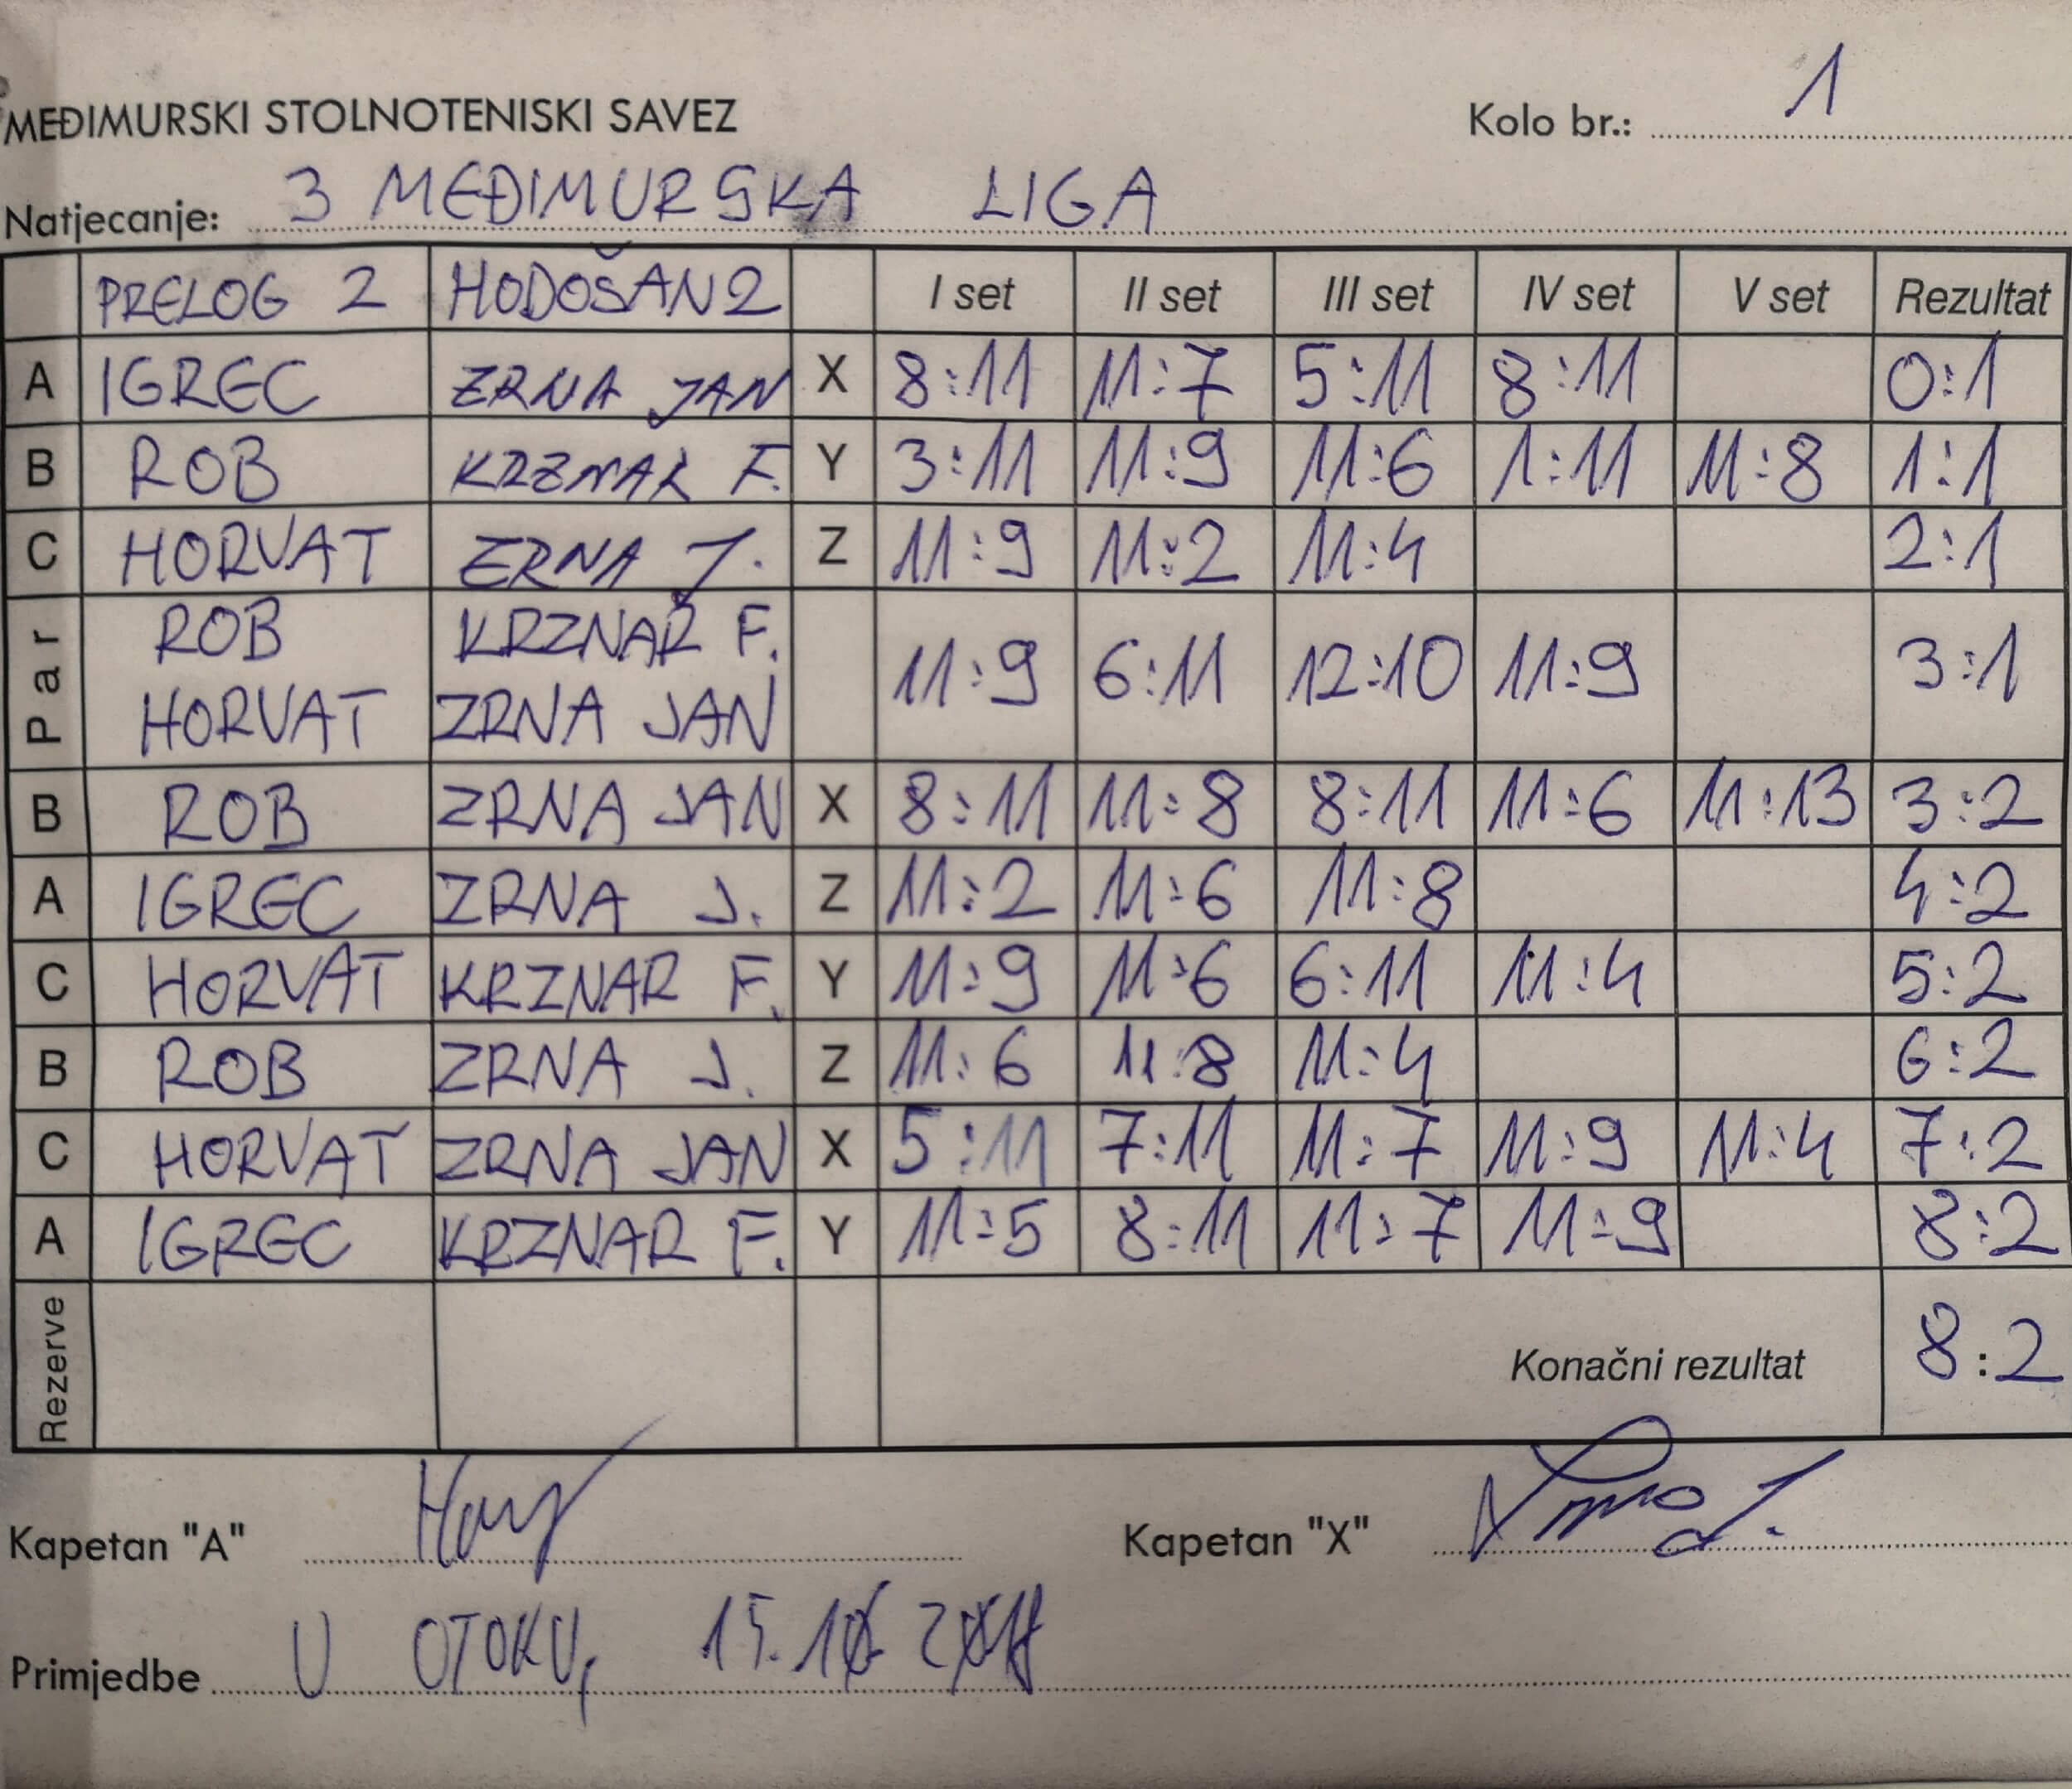 MEĐIMURSKI STOLNOTENISKI SAVEZ Kolo br.: 1
Natjecanje: 3 MEĐIMURSKA LIGA
PRELOG 2 HODOŠAN 2 I set II set III set IV set V set Rezultat
A IGREC ZRNA JAN X 8:11 11:7 5:11 8:11 0:1
B ROB KRZNAR F. Y 3:11 11:9 11:6 1:11 11:8 1:1
C HORVAT ZRNA J. Z 11:9 11:2 11:4 2:1
Par ROB KRZNAR F. 11:9 6:11 12:10 11:9 3:1
HORVAT ZRNA JAN
B ROB ZRNA JAN X 8:11 11:8 8:11 11:6 11:13 3:2
A IGREC ZRNA J. Z 11:2 11:6 11:8 4:2
C HORVAT KRZNAR F. Y 11:9 11:6 6:11 11:4 5:2
B ROB ZRNA J. Z 11:6 11:8 11:4 6:2
C HORVAT ZRNA JAN X 5:11 7:11 11:7 11:9 11:4 7:2
A IGREC KRZNAR F. Y 11:5 8:11 11:7 11:9 8:2
Rezerve Konačni rezultat 8:2
Kapetan "A" Kapetan "X"
Primjedbe U OTOKU,